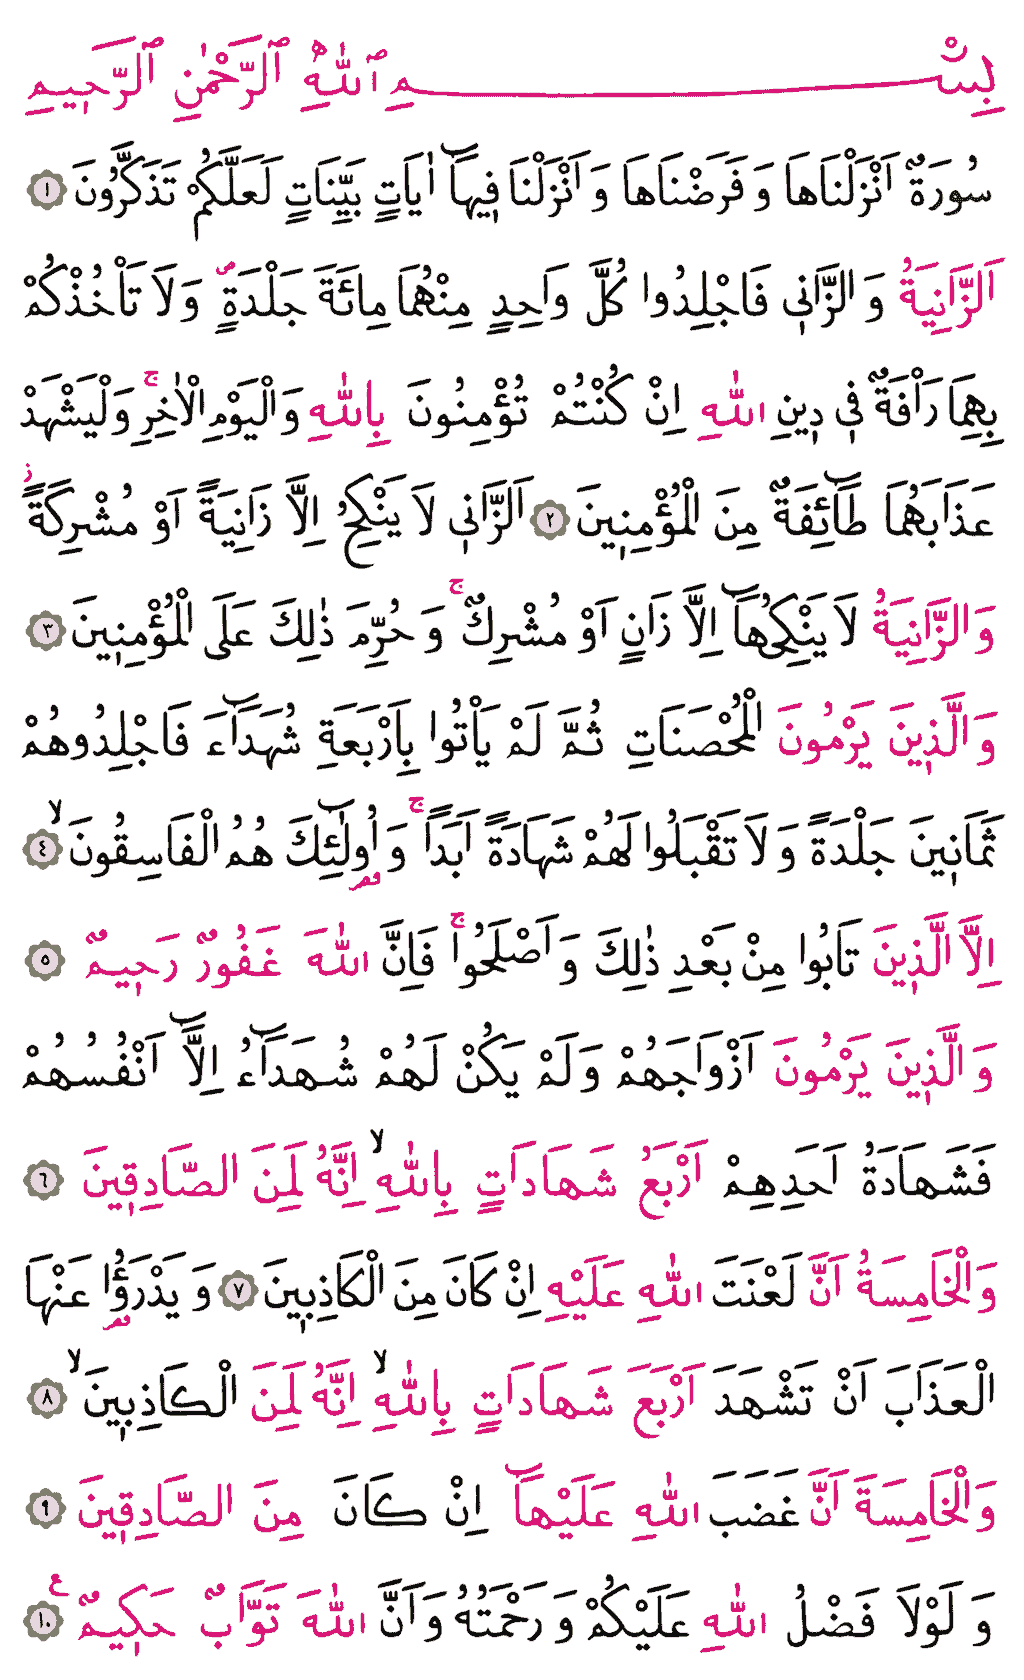 بِسْمِ ٱللّٰهِ ٱلرَّحْمٰنِ ٱلرَّحٖيمِ
سُورَةٌ اَنْزَلْنَاهَا وَ فَرَضْنَاهَا وَ اَنْزَلْنَا فٖيهَٓا اٰيَاتٍ بَيِّنَاتٍ لَعَلَّكُمْ تَذَكَّرُونَ ١
اَلزَّانِيَةُ وَ الزَّانٖي فَاجْلِدُوا كُلَّ وَاحِدٍ مِنْهُمَا مِائَةَ جَلْدَةٍ ص وَ لَا تَأْخُذْكُمْ
بِهِمَا رَأْفَةٌ فٖي دٖينِ اللّٰهِ اِنْ كُنْتُمْ تُؤْمِنُونَ بِاللّٰهِ وَ الْيَوْمِ الْاٰخِرِ ج وَلْيَشْهَدْ
عَذَابَهُمَا طَٓائِفَةٌ مِنَ الْمُؤْمِنٖينَ ٢ اَلزَّانٖي لَا يَنْكِحُ اِلَّا زَانِيَةً اَوْ مُشْرِكَةً ز
وَ الزَّانِيَةُ لَا يَنْكِحُهَٓا اِلَّا زَانٍ اَوْ مُشْرِكٌ ج وَ حُرِّمَ ذٰلِكَ عَلَى الْمُؤْمِنٖينَ ٣
وَ الَّذٖينَ يَرْمُونَ الْمُحْصَنَاتِ ثُمَّ لَمْ يَأْتُوا بِاَرْبَعَةِ شُهَدَٓاءَ فَاجْلِدُوهُمْ
ثَمَانٖينَ جَلْدَةً وَ لَا تَقْبَلُوا لَهُمْ شَهَادَةً اَبَدًا ج وَ اُولٰٓئِكَ قصر هُمُ الْفَاسِقُونَ لا ٤
اِلَّا الَّذٖينَ تَابُوا مِنْ بَعْدِ ذٰلِكَ وَ اَصْلَحُوا ج فَاِنَّ اللّٰهَ غَفُورٌ رَحٖيمٌ ٥
وَ الَّذٖينَ يَرْمُونَ اَزْوَاجَهُمْ وَ لَمْ يَكُنْ لَهُمْ شُهَدَٓاءُ اِلَّٓا اَنْفُسُهُمْ
فَشَهَادَةُ اَحَدِهِمْ اَرْبَعُ شَهَادَاتٍ بِاللّٰهِ لا اِنَّهُ لَمِنَ الصَّادِقٖينَ ٦
وَ الْخَامِسَةُ اَنَّ لَعْنَتَ اللّٰهِ عَلَيْهِ اِنْ كَانَ مِنَ الْكَاذِبٖينَ ٧ وَ يَدْرَؤُا قصر عَنْهَا
الْعَذَابَ اَنْ تَشْهَدَ اَرْبَعَ شَهَادَاتٍ بِاللّٰهِ لا اِنَّهُ لَمِنَ الْكَاذِبٖينَ لا ٨
وَ الْخَامِسَةَ اَنَّ غَضَبَ اللّٰهِ عَلَيْهَٓا اِنْ كَانَ مِنَ الصَّادِقٖينَ ٩
وَ لَوْلَا فَضْلُ اللّٰهِ عَلَيْكُمْ وَ رَحْمَتُهُ وَ اَنَّ اللّٰهَ تَوَّابٌ حَكٖيمٌ ع ١٠